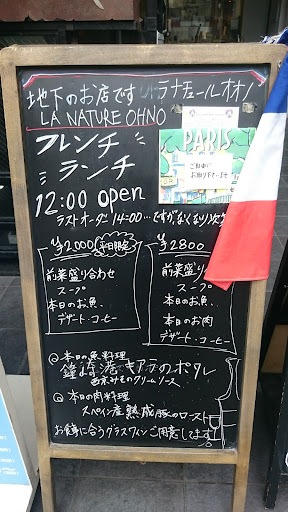 地下のお店です ラナチュールオオノ
LA NATURE OHNO
フレンチ
ランチ
PARIS
ご自由に
お取り下さいませ
12:00 open
ラストオーダー 14:00…ですがなくなり次第
¥2,000 平日限定
前菜盛り合わせ
スープ
本日のお魚、
デザート・コーヒー
¥2800
前菜盛り
スープ
本日のお魚、
本日のお肉
デザート・コーヒー
本日の魚料理
鐘崎港で キアラのポワレ
西京みそのクリームソース
本日の肉料理
スペイン産熟成豚のロースト
お食事に合うグラスワインご用意してます